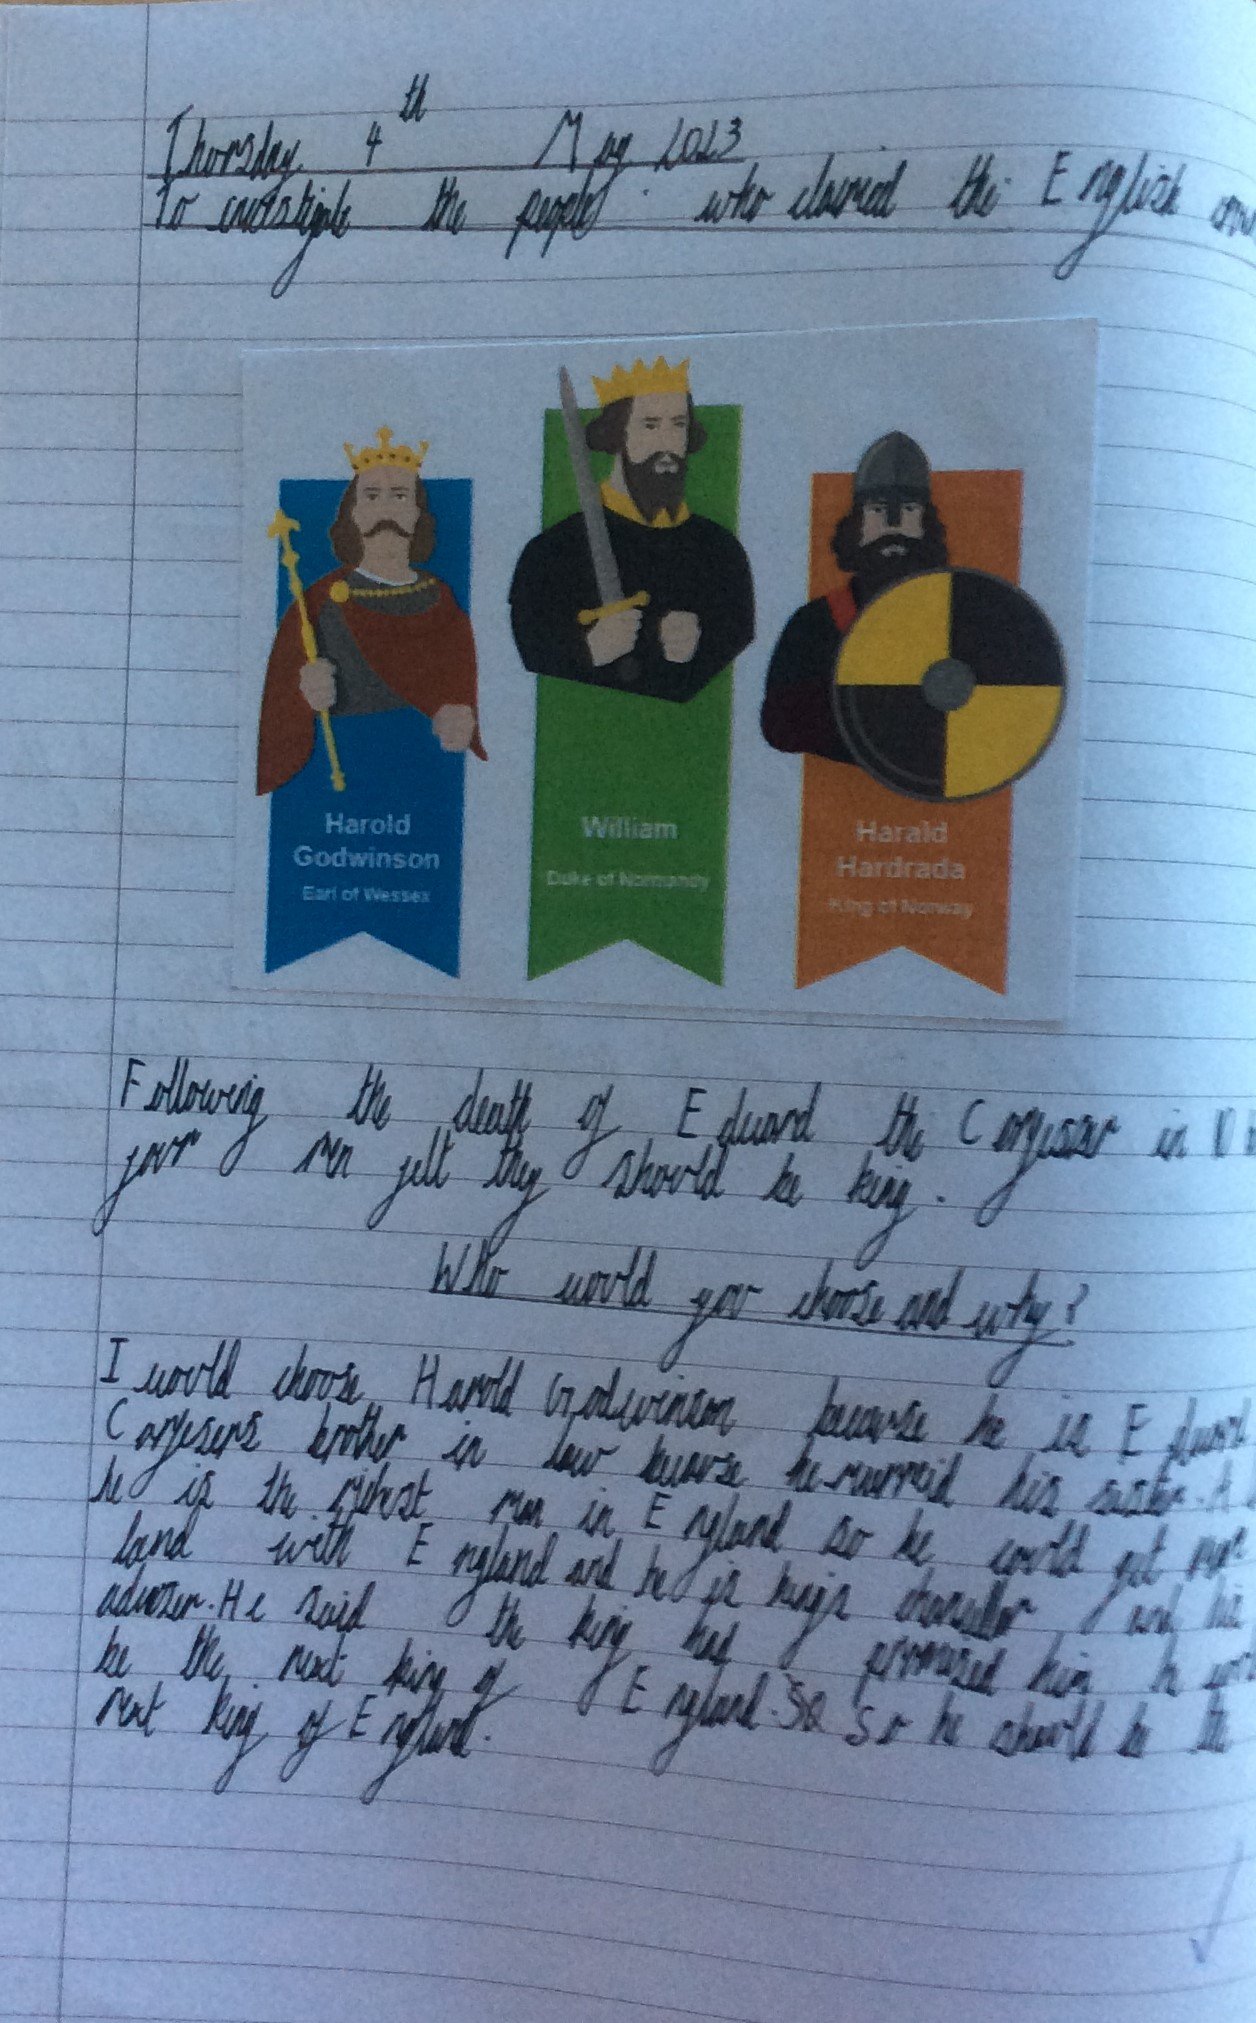 Thursday 4th May 2023
To investigate the people who claimed the English
Harold
Godwinson
Earl of Wessex
William
Duke of Normandy
Harald
Hardrada
King of Norway
Following the death of Edward the Confessor in
four men felt they should be king.
Who would you choose and why?
I would choose Harold Godwinson because he is Edward
Confesers brother in law because he marreid his sister.
he is the richest man in England so he could get more
land with England and he is kings and his
adviser. He said the king had promised him he
be the next king of England. So he should be the
next king of England.